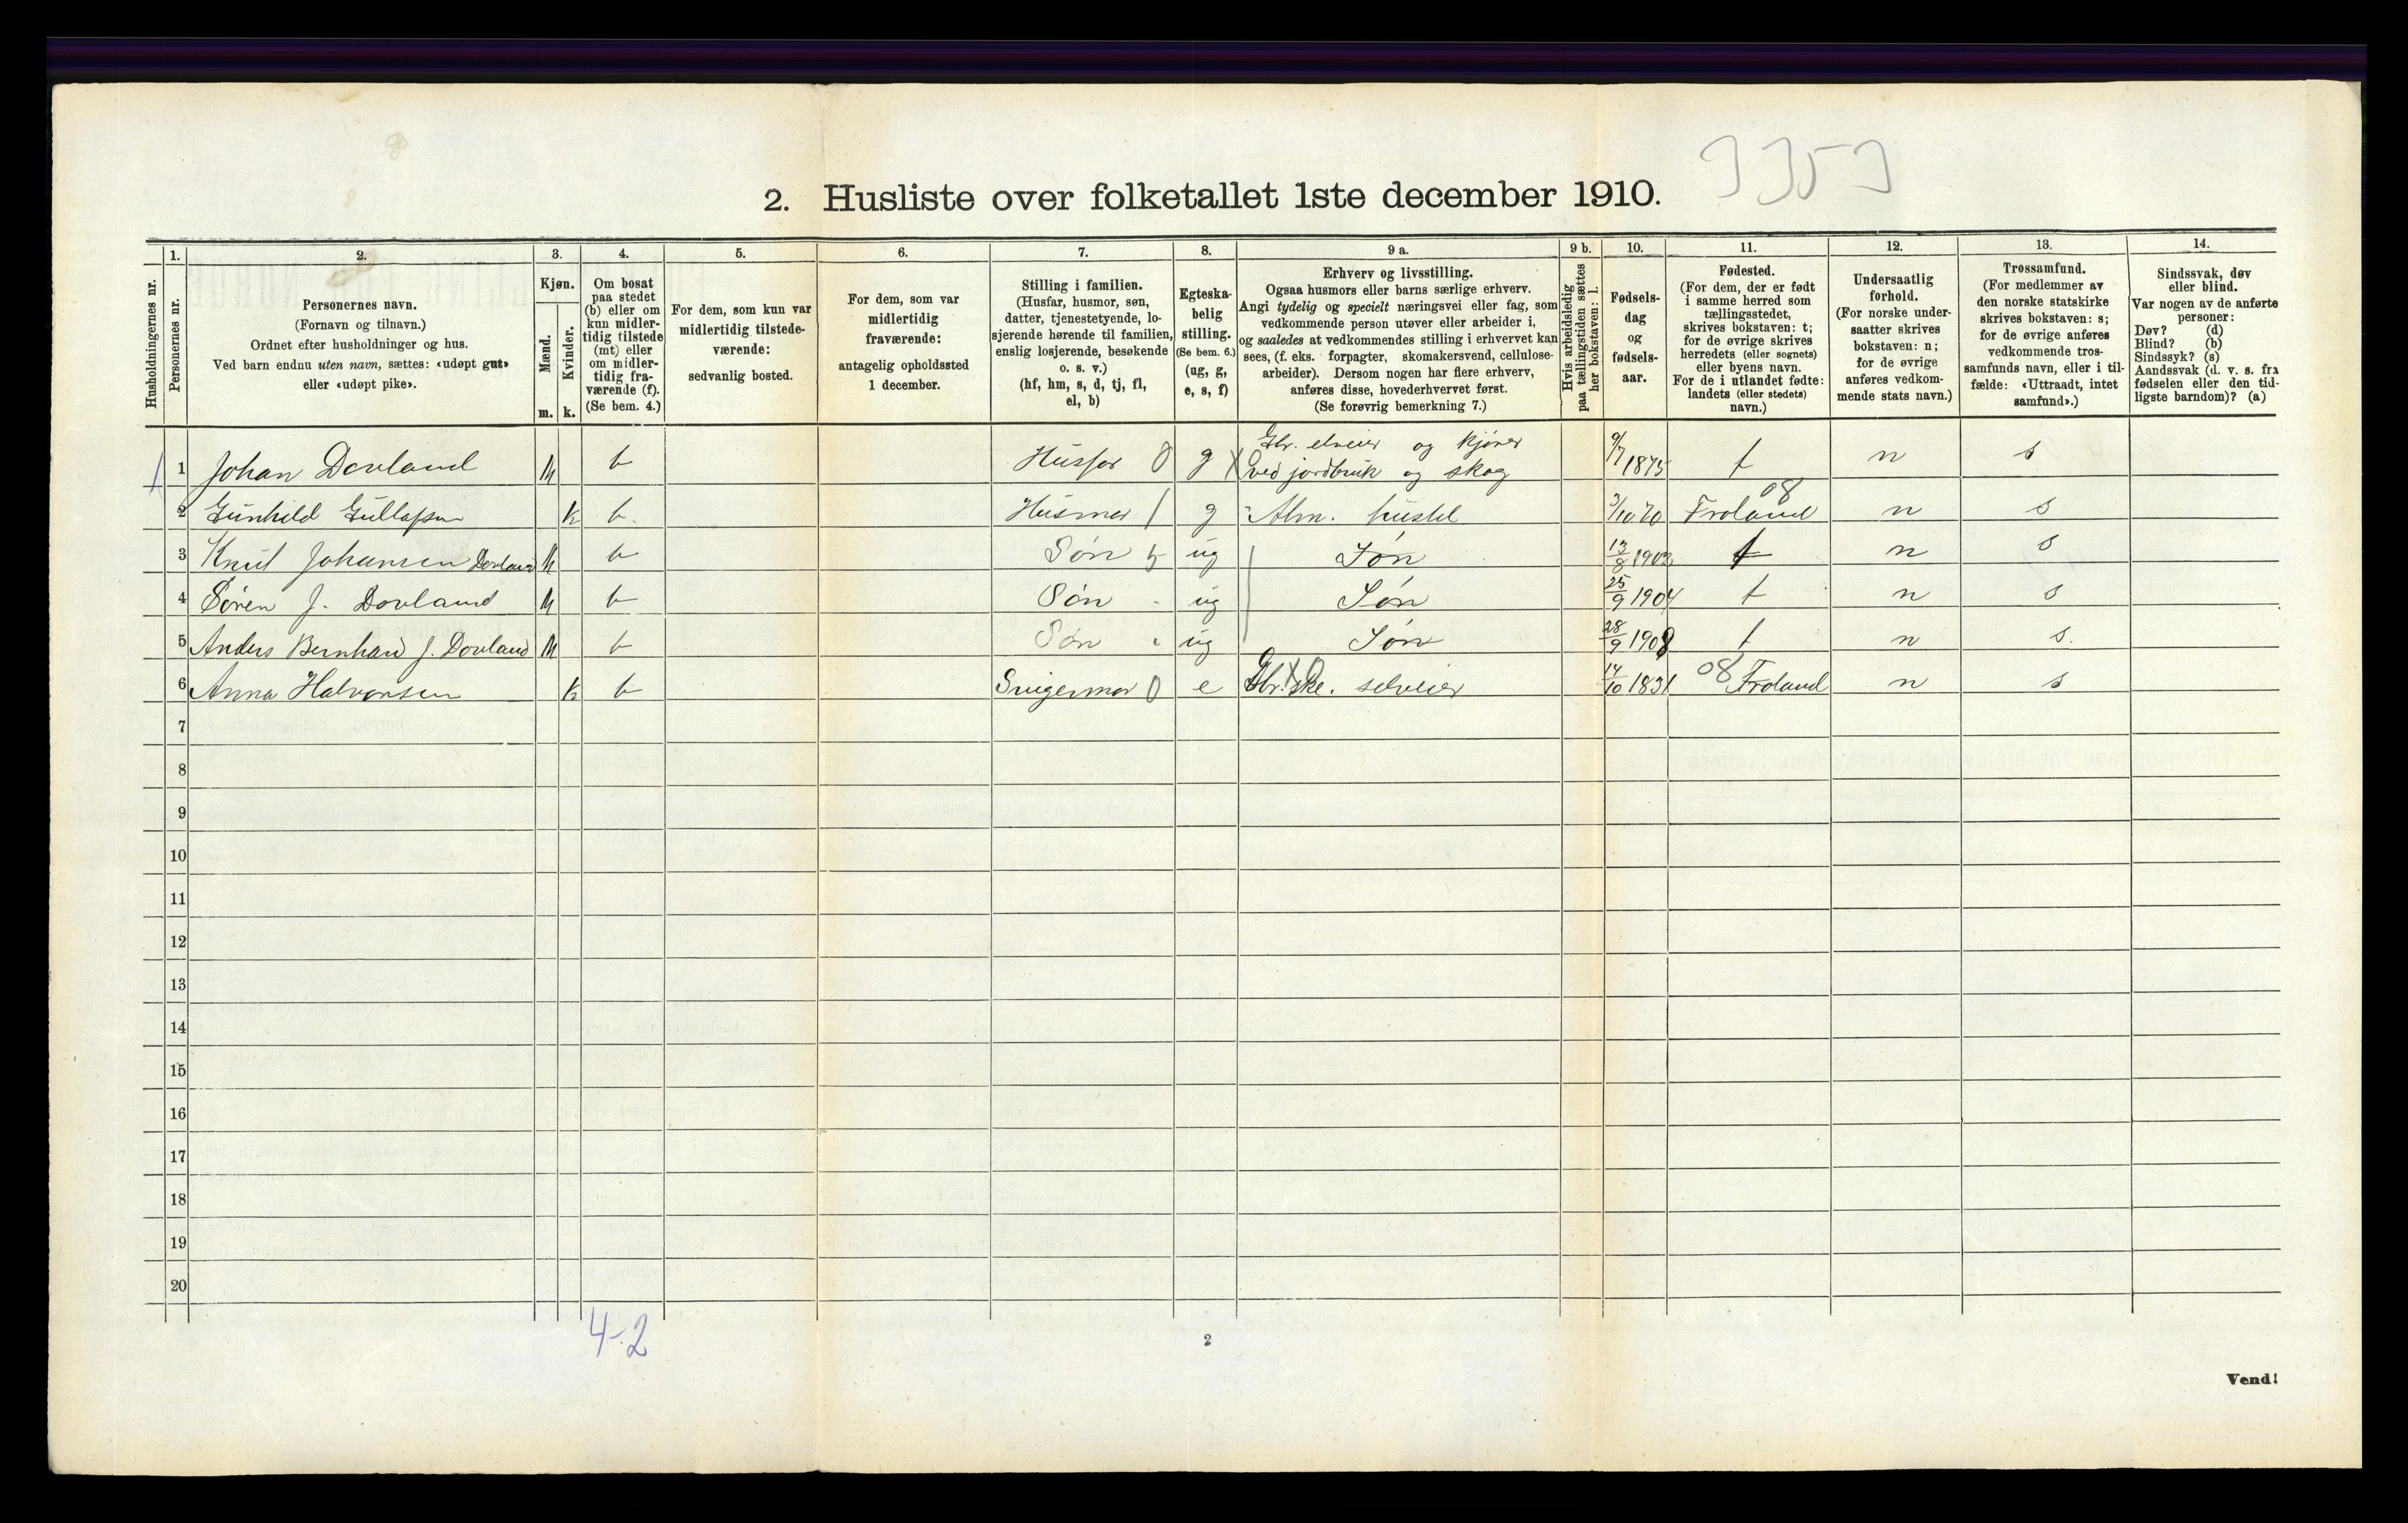 3353
2. Husliste over folketallet 1ste december 1910.
Husholdningernes nr.
1.
Personernes nr.
2.
Personernes navn.
(Fornavn og tilnavn.)
Ordnet efter husholdninger og hus.
Ved barn endnu uten navn, sættes: «udøpt gut»
eller «udøpt pike».
3.
Kjøn.
Mænd.
m.
Kvinder.
k.
4.
Om bosat
paa stedet
(b) eller om
kun midler-
tidig tilstede
(mt) eller
om midler-
tidig fra-
værende (f).
(Se bem. 4.)
5.
For dem, som kun var
midlertidig tilstede-
værende:
sedvanlig bosted.
6.
For dem, som var
midlertidig
fraværende:
antagelig opholdssted
1 december.
7.
Stilling i familien.
(Husfar, husmor, søn,
datter, tjenestetyende, lo-
sjerende hørende til familien,
enslig losjerende, besøkende
o. s. v.)
(hf, hm, s, d, tj, fl,
el, b)
8.
Egteska-
belig
stilling.
(Se bem. 6.)
(ug, g,
e, s, f)
9 a.
Erhverv og livsstilling.
Ogsaa husmors eller barns særlige erhverv.
Angi tydelig og specielt næringsvei eller fag, som
vedkommende person utøver eller arbeider i,
og saaledes at vedkommendes stilling i erhvervet kan
sees, (f. eks. forpagter, skomakersvend, cellulose-
arbeider). Dersom nogen har flere erhverv,
anføres disse, hovederhvervet først.
(Se forøvrig bemerkning 7.)
9 b.
Hvis arbeidsledig
paa tællingstiden sættes
her bokstaven: l.
10.
Fødsels-
dag
og
fødsels-
aar.
11.
Fødested.
(For dem, der er født
i samme herred som
tællingsstedet,
skrives bokstaven: t;
for de øvrige skrives
herredets (eller sognets)
eller byens navn.
For de i utlandet fødte:
landets (eller stedets)
navn.)
12.
Undersaatlig
forhold.
(For norske under-
saatter skrives
bokstaven: n;
for de øvrige
anføres vedkom-
mende stats navn.)
13.
Trossamfund.
(For medlemmer av
den norske statskirke
skrives bokstaven: s;
for de øvrige anføres
vedkommende tros-
samfunds navn, eller i til-
fælde: «Uttraadt, intet
samfund».)
14.
Sindssvak, døv
eller blind.
Var nogen av de anførte
personer:
Døv? (d)
Blind? (b)
Sindssyk? (s)
Aandssvak (d. v. s. fra
fødselen eller den tid-
ligste barndom)? (a)
1 Johan Dovland M b Husfar 0 g X Gbr. selveier og kjører
ved jordbruk og skog 9/7 1875 t n s
2 Gunhild Gullafsen k b. Husmor / g Alm. hustel 3/10 70 Froland 08 n s
3 Knut Johansen Dovland M b Søn ug Søn 13/8 1902 t n s
4 Søren J. Dovland M b Søn ug Søn 25/9 1904 t n s
5 Anders Bernhard J. Dovland M b Søn ug Søn 28/9 1908 t n s.
6 Anna Halvorsen k b Svigermor 0 e Gbr.ske. selveier 14/10 1831 08 Froland n s
7
8
9
10
11
12
13
14
15
16
17
18
19
20
4-2
2
Vend!